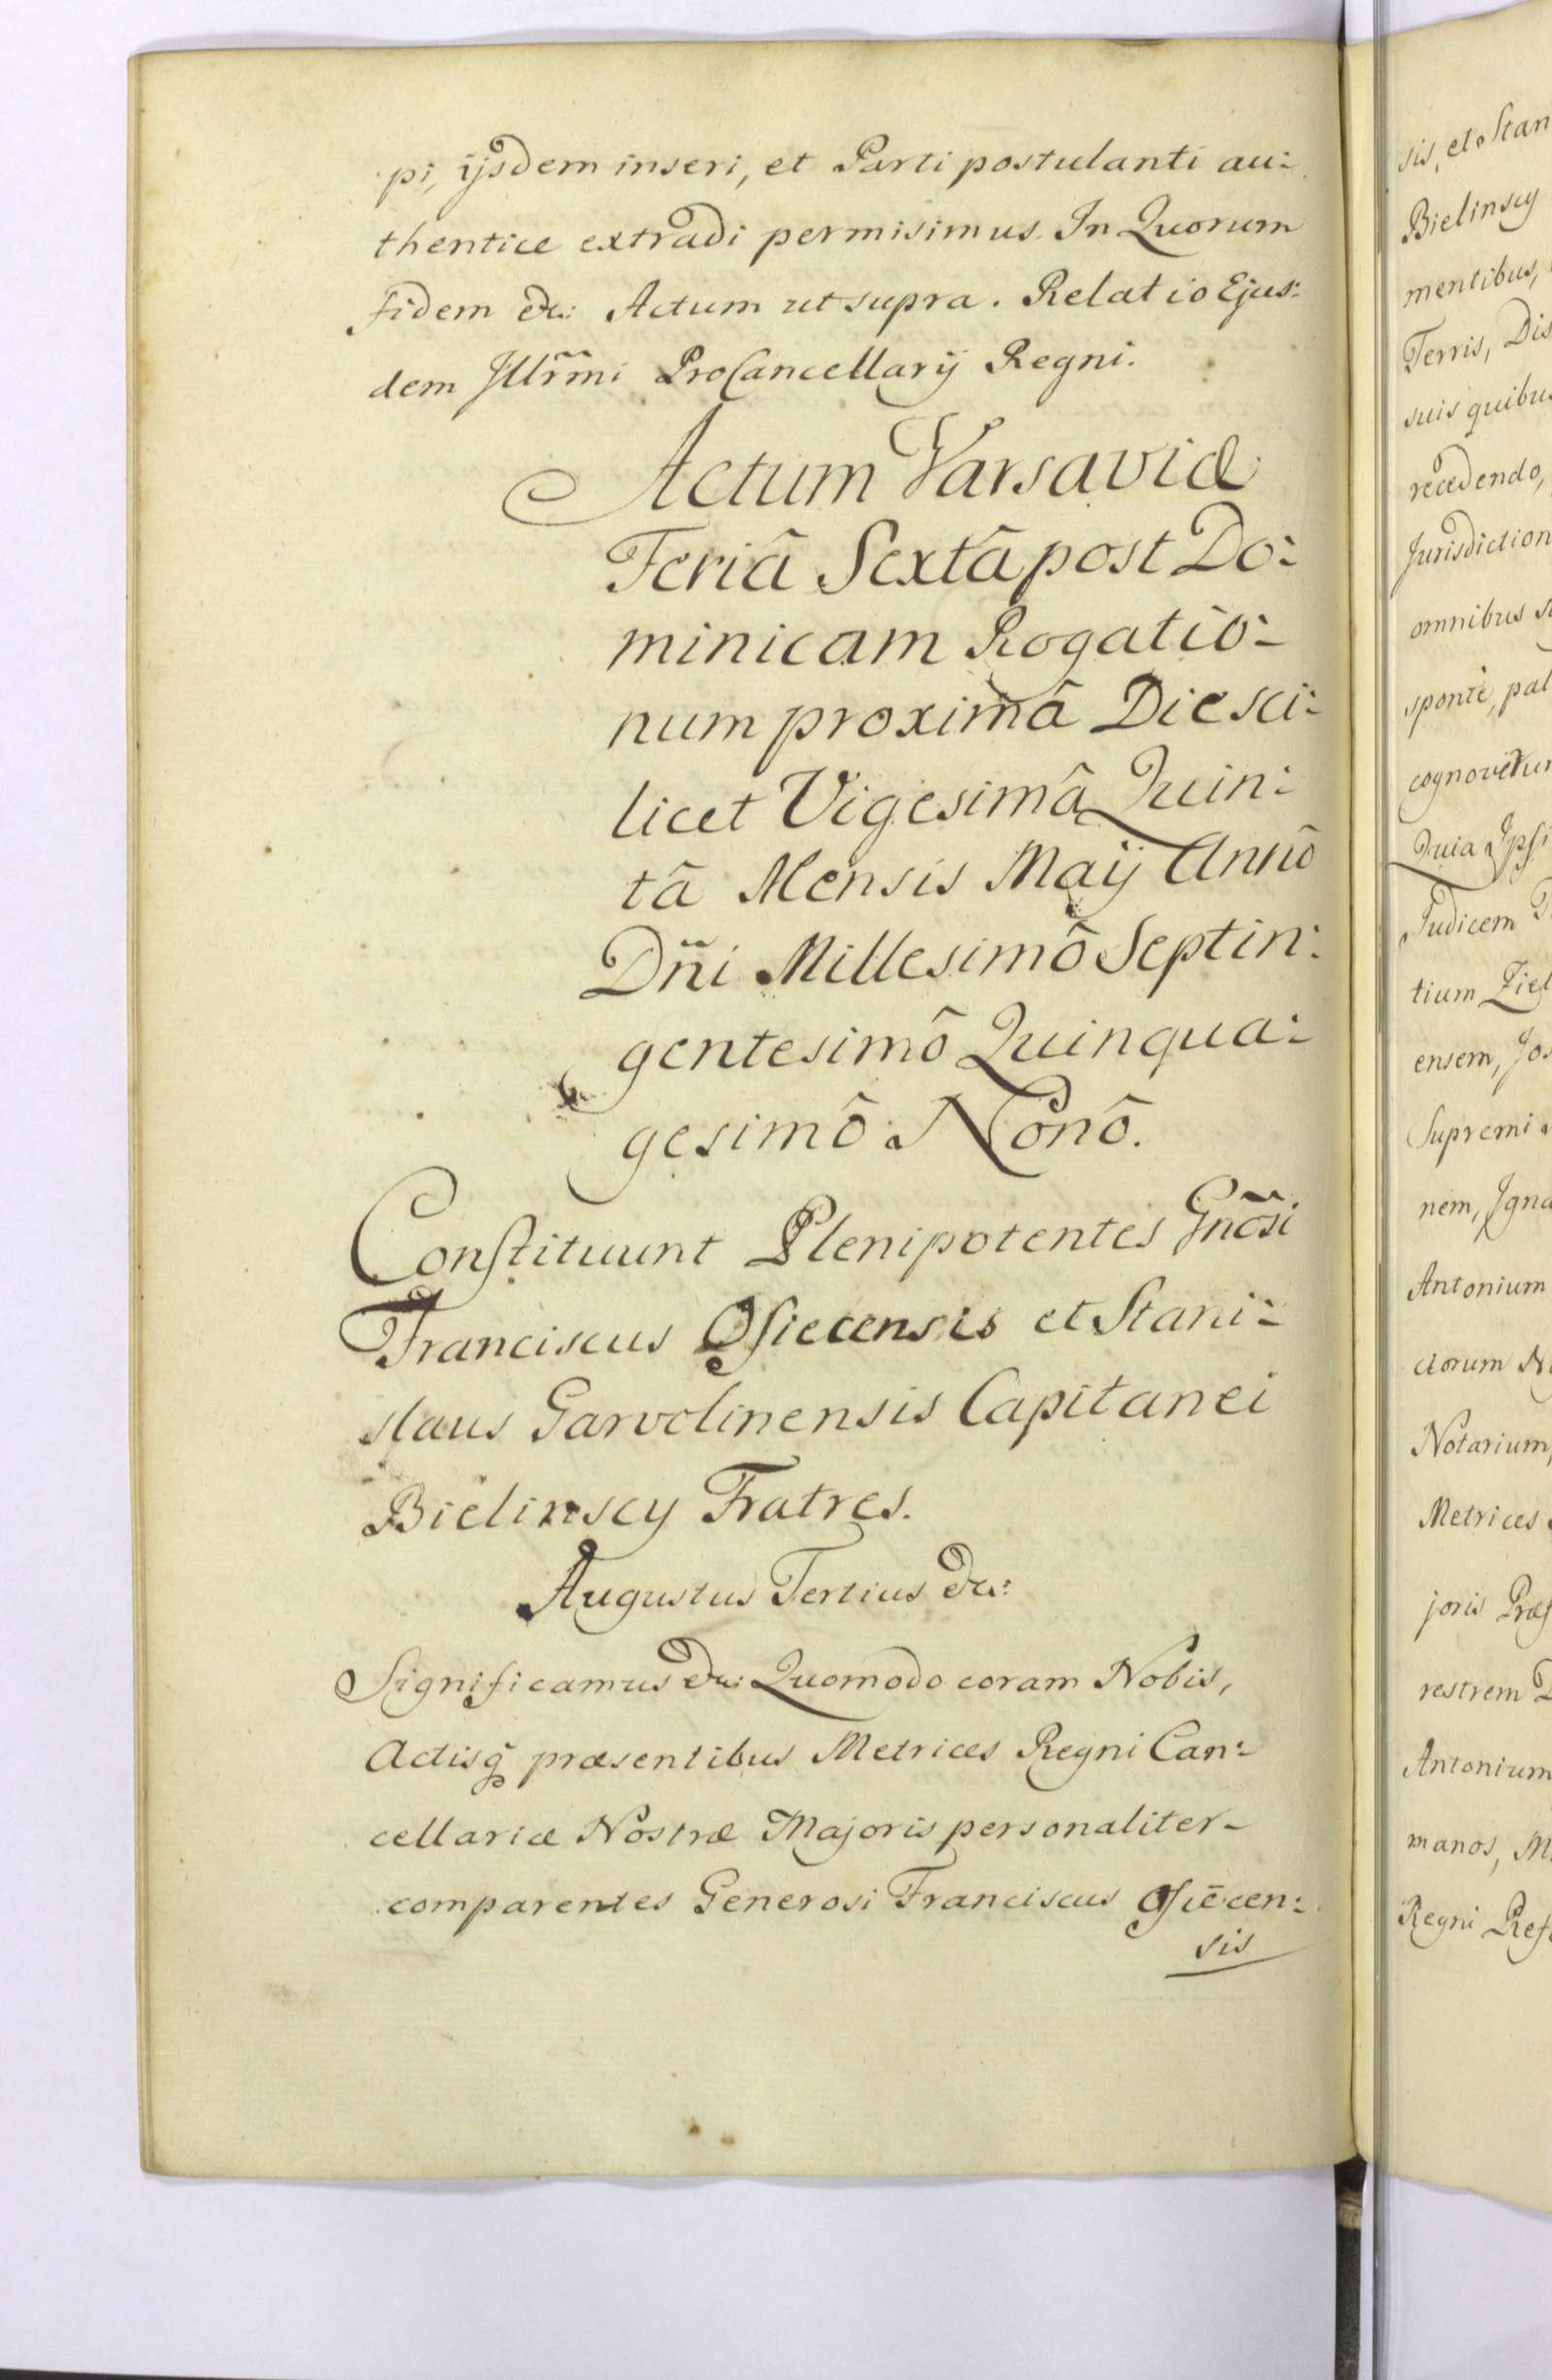 pi, ijsdem inseri, et Parti postulanti au:
thentice extradi permisimus. In Quorum
Fidem &c: Actum ut supra. Relatio Ejus:
dem Illr̃mi ProCancellarij Regni.
Actum Varsaviæ
Feriâ Sextâ post Do:
minicam Rogatio:
num proximâ Die sci:
licet Vigesimâ Quin:
tâ Mensis Maij Annô
Dñi Millesimô Septin:
gentesimô Quinqua:
gesimô Nonô.
Constituunt Plenipotentes Gñosi
Franciscus Osiecensis et Stani:
slaus Garvolinensis Capitanei
Bielinscy Fratres.
Augustus Tertius &c:
Significamus &c: Quomodo coram Nobis,
Actisq̃ præsentibus Metrices Regni Can:
cellariæ Nostræ Majoris personaliter-
comparentes Generosi Franciscus Osiecen:
sis
sis, et Stan
Bielinscy
mentibus,
Terris, Dis
suis quibus
recedendo,
Jurisdiction
omnibus
sponte, pal
cognoverun
Quia Ipsi
Judicem
tium Ziel
ensem, Jos
Supremi
nem, Igna
Antonium
ctorum
Notarium,
Metrices
joris Præf
restrem
Antonium
manos,
Regni